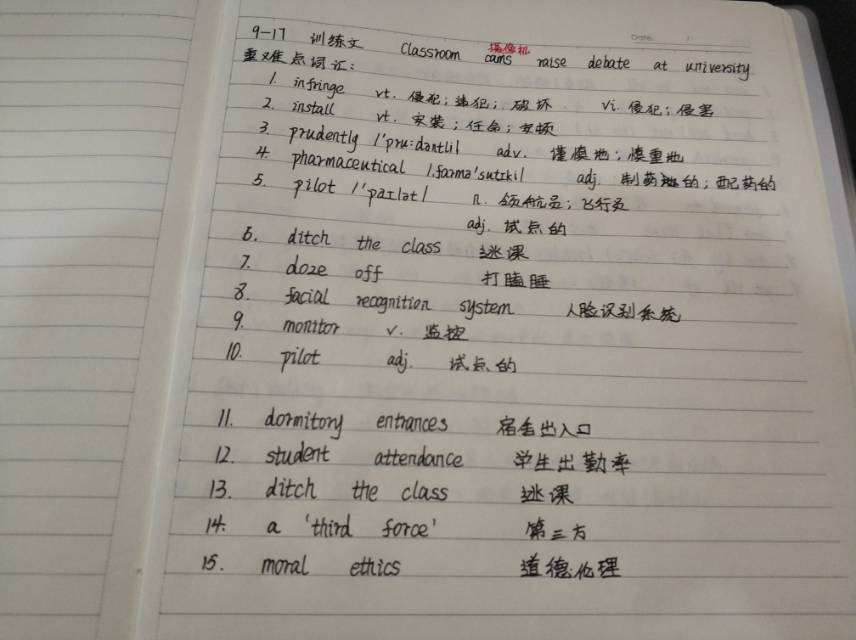 Date.
9-17 训练文 Classroom cams raise debate at university
摄像机
重难点词汇:
1. infringe vt. 侵犯; 违犯; 破坏 vi. 侵犯; 侵害
2. install vt. 安装; 任命; 安顿
3. prudently /'pru:dəntli/ adv. 谨慎地; 慎重地
4. pharmaceutical /ˌfɑ:mə'sutɪkl/ adj. 制药的; 配药的
5. pilot /'paɪlət/ n. 领航员; 飞行员
adj. 试点的
6. ditch the class 逃课
7. doze off 打瞌睡
8. facial recognition system 人脸识别系统
9. monitor v. 监控
10. pilot adj. 试点的
11. dormitory entrances 宿舍出入口
12. student attendance 学生出勤率
13. ditch the class 逃课
14. a 'third force' 第三方
15. moral ethics 道德伦理